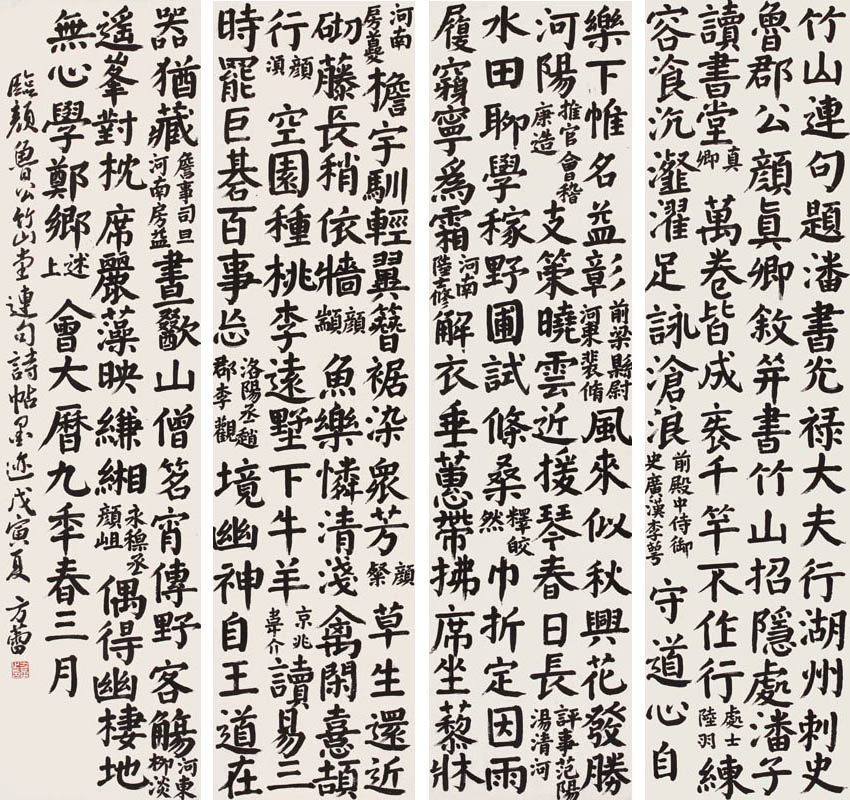 竹山連句題潘書光祿大夫行湖州刺史
魯郡公顏眞卿敘并書竹山招隱處潘子
讀書堂真卿萬卷皆成袠千竿不作行處士陸羽練
容飡沆瀣濯足詠滄浪前殿中侍御史廣漢李萼守道心自
樂下帷名益彰前梁縣尉河東裴脩風來似秋興花發勝
河陽推官會稽康造支策曉雲近援琴春日長評事范陽湯清河
水田聊學稼野圃試條桑釋皎然巾折定因雨
履穿寧爲霜河南陸士修解衣垂蕙帶拂席坐藜牀
河南房夔檐宇馴輕翼簪裾染衆芳顏粲草生還近
砌藤長稍依牆顏顓魚樂憐清淺禽閑憙頡
行顏湏空園種桃李遠墅下牛羊京兆韋介讀易三
時罷巨碁百事忘洛陽丞趙郡李觀境幽神自王道在
器猶藏詹事司直河南房益晝歠山僧茗宵傳野客觴河東柳淡
遥峯對枕席麗藻映縑緗永穆丞顏峴偶得幽棲地
無心學鄭鄉述上會大曆九年春三月
臨顏魯公竹山堂連句詩帖墨迹戊寅夏方雷